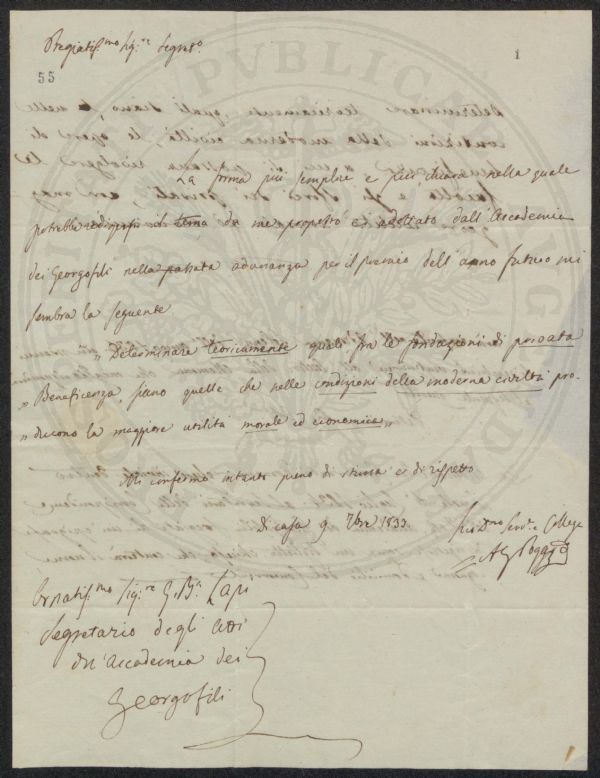 Pregiatiss.mo Sig.re Segret.o
1
55
La forma più semplice e più chiara nella quale
potrebbe redigersi il tema da me proposto e adottato dall'Accademia
dei Georgofili nella passata adunanza per il premio dell'anno futuro mi
sembra la seguente
" Determinare teoricamente quali fra le fondazioni di privata
" Beneficenza, siano quelle che nelle condizioni della moderna civiltà pro-
" ducono la maggiore utilità morale ed economica "
Mi confermo intanto pieno di stima e di rispetto
Di casa 9 7bre 1833.
Suo Dmo Serv.e e Collega
Ornatiss.mo Sig.re G. Ba. Lapi
Segretario degli Atti
dell'Accademia dei
Georgofili